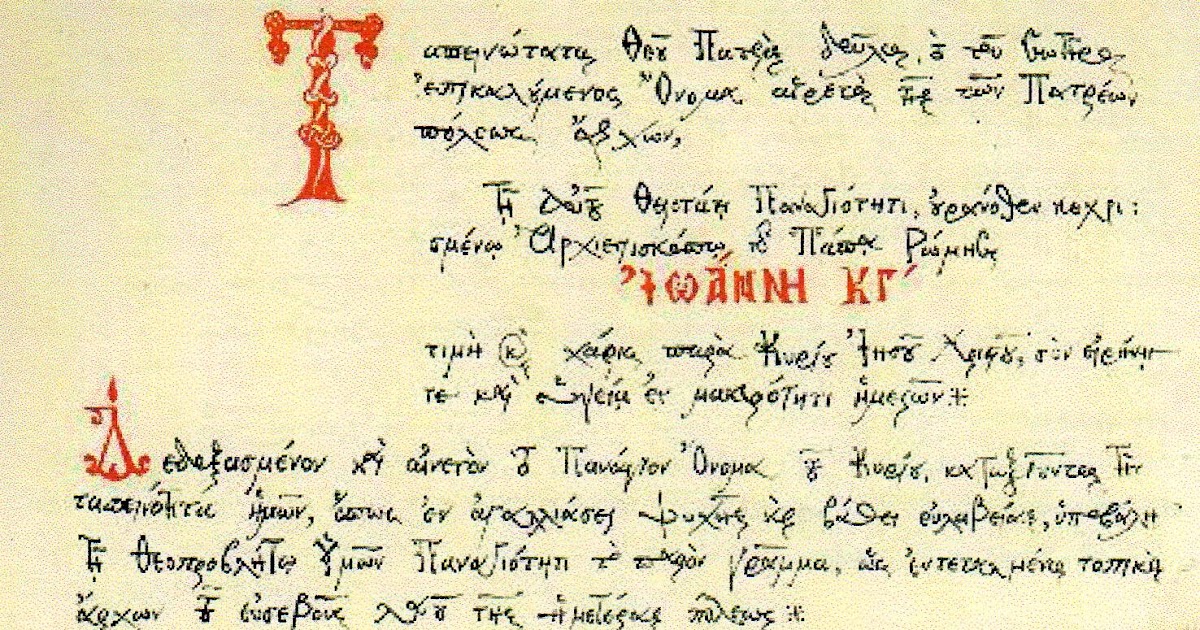 Ταπεινότατος Θεοῦ Πατρὸς δοῦλος, ὁ τοῦ Σωτῆρος
ἐπικαλούμενος Ὄνομα αἱρετὸς τῆς τῶν Πατρέων
πόλεως ἄρχων,
Τῇ αὐτοῦ Θειοτάτῃ Παναγιότητι, οὐρανόθεν κεχρι:
σμένῳ Ἀρχιεπισκόπῳ τῷ Πάπᾳ Ῥώμης
ἸΩΆΝΝΗ ΚΓ´
τιμὴ καὶ χάρις παρὰ Κυρίου Ἰησοῦ Χριστοῦ, σὺν εἰρήνῃ
τε καὶ ὑγιείᾳ ἐν μακρότητι ἡμερῶν
Δεδοξασμένον καὶ αἰνετὸν τὸ Πανάγιον Ὄνομα τοῦ Κυρίου, τὴν
ταπεινότητα ἡμῶν, ὅπως ἐν ἀγαλλιάσει ψυχῆς καὶ βάθει εὐλαβείας, ὑποβάλῃ
Τῇ Θεοπροβλήτῳ Ὑμῶν Παναγιότητι τὸ παρὸν γράμμα, ὡς ἐντεταλμένος τοπικὸς
ἄρχων τοῦ εὐσεβοῦς λαοῦ τῆς ἡμετέρας πόλεως